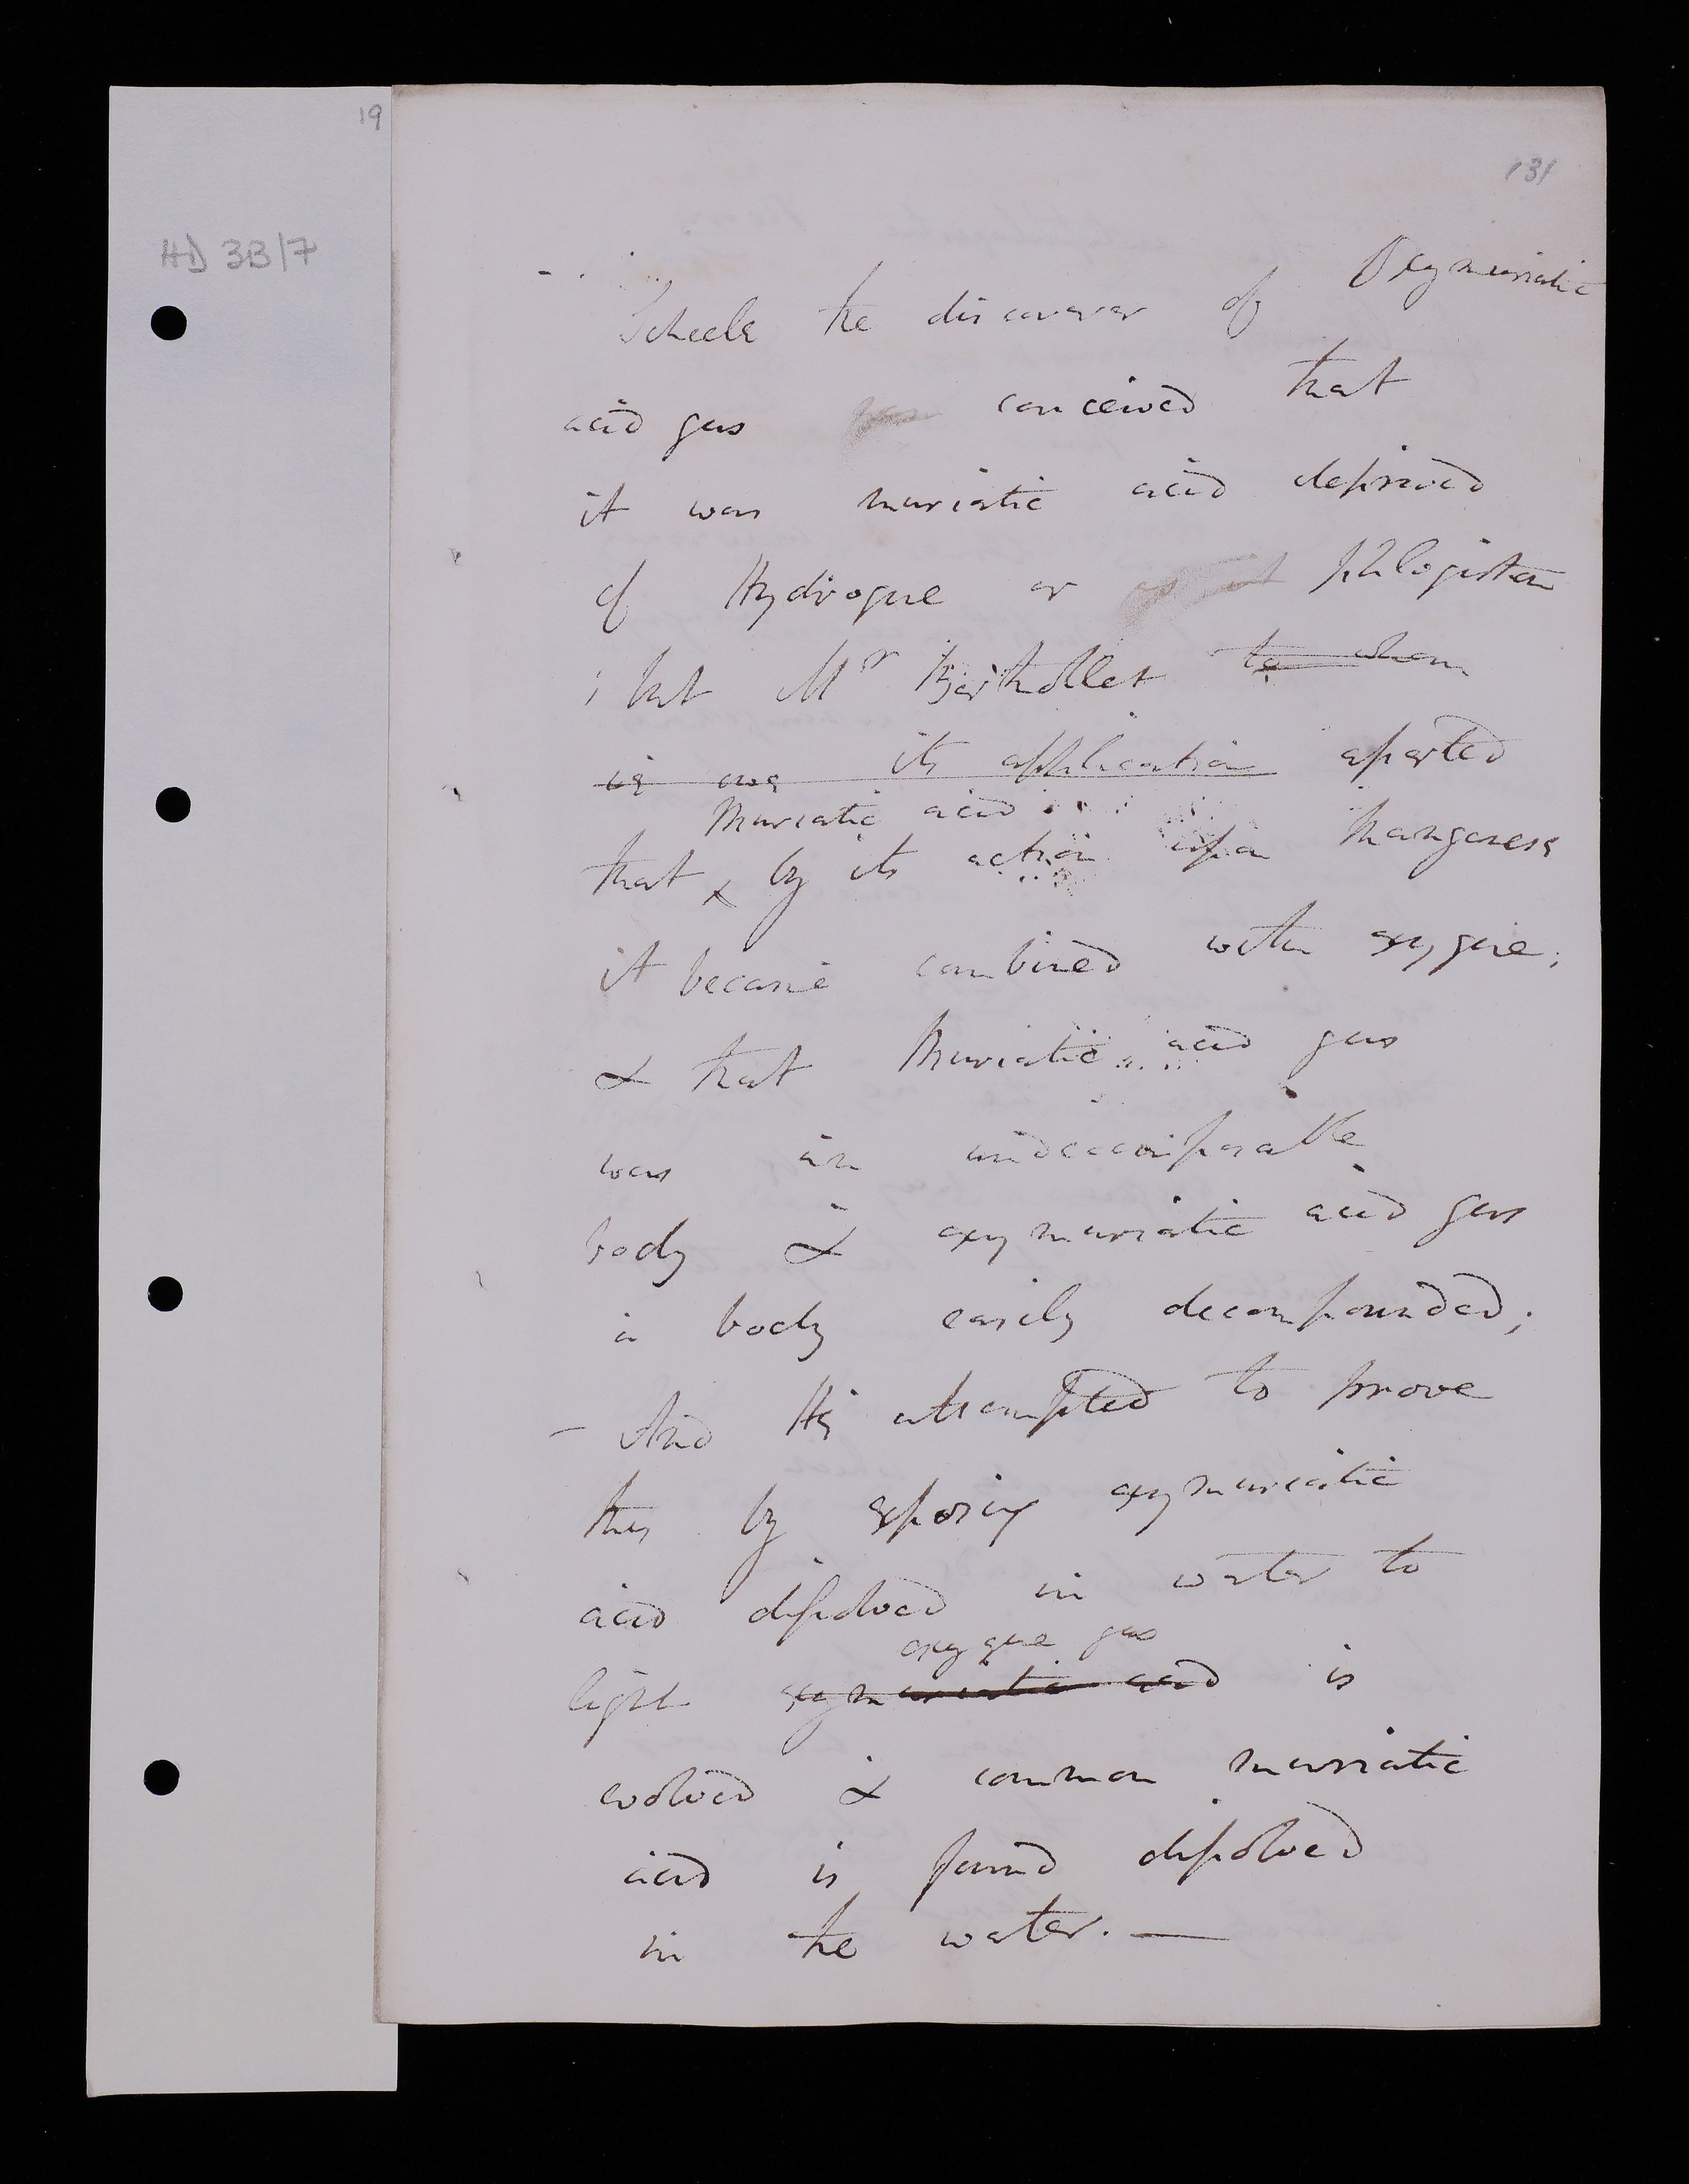 19
HD 3B/7
131
Scheele the discoverer of Oxymuriatic
acid gas conceived that
it was muriatic acid deprived
of Hydrogene or phlogiston
; but Mr Berthollet to whom
we owe its application aſserted
Muriatic acid
that x by its action upon Manganese
it became combined with oxygene;
& that Muriatic acid gas
was an undecomposable
body & oxymuriatic acid gas
a body easily decompounded;
- And He attempted to prove
this by exposing oxymuriatic
acid diſsolved in water to
oxygene gas
light oxymuriatic acid is
evolved & common muriatic
acid is found diſsolved
in the water. —